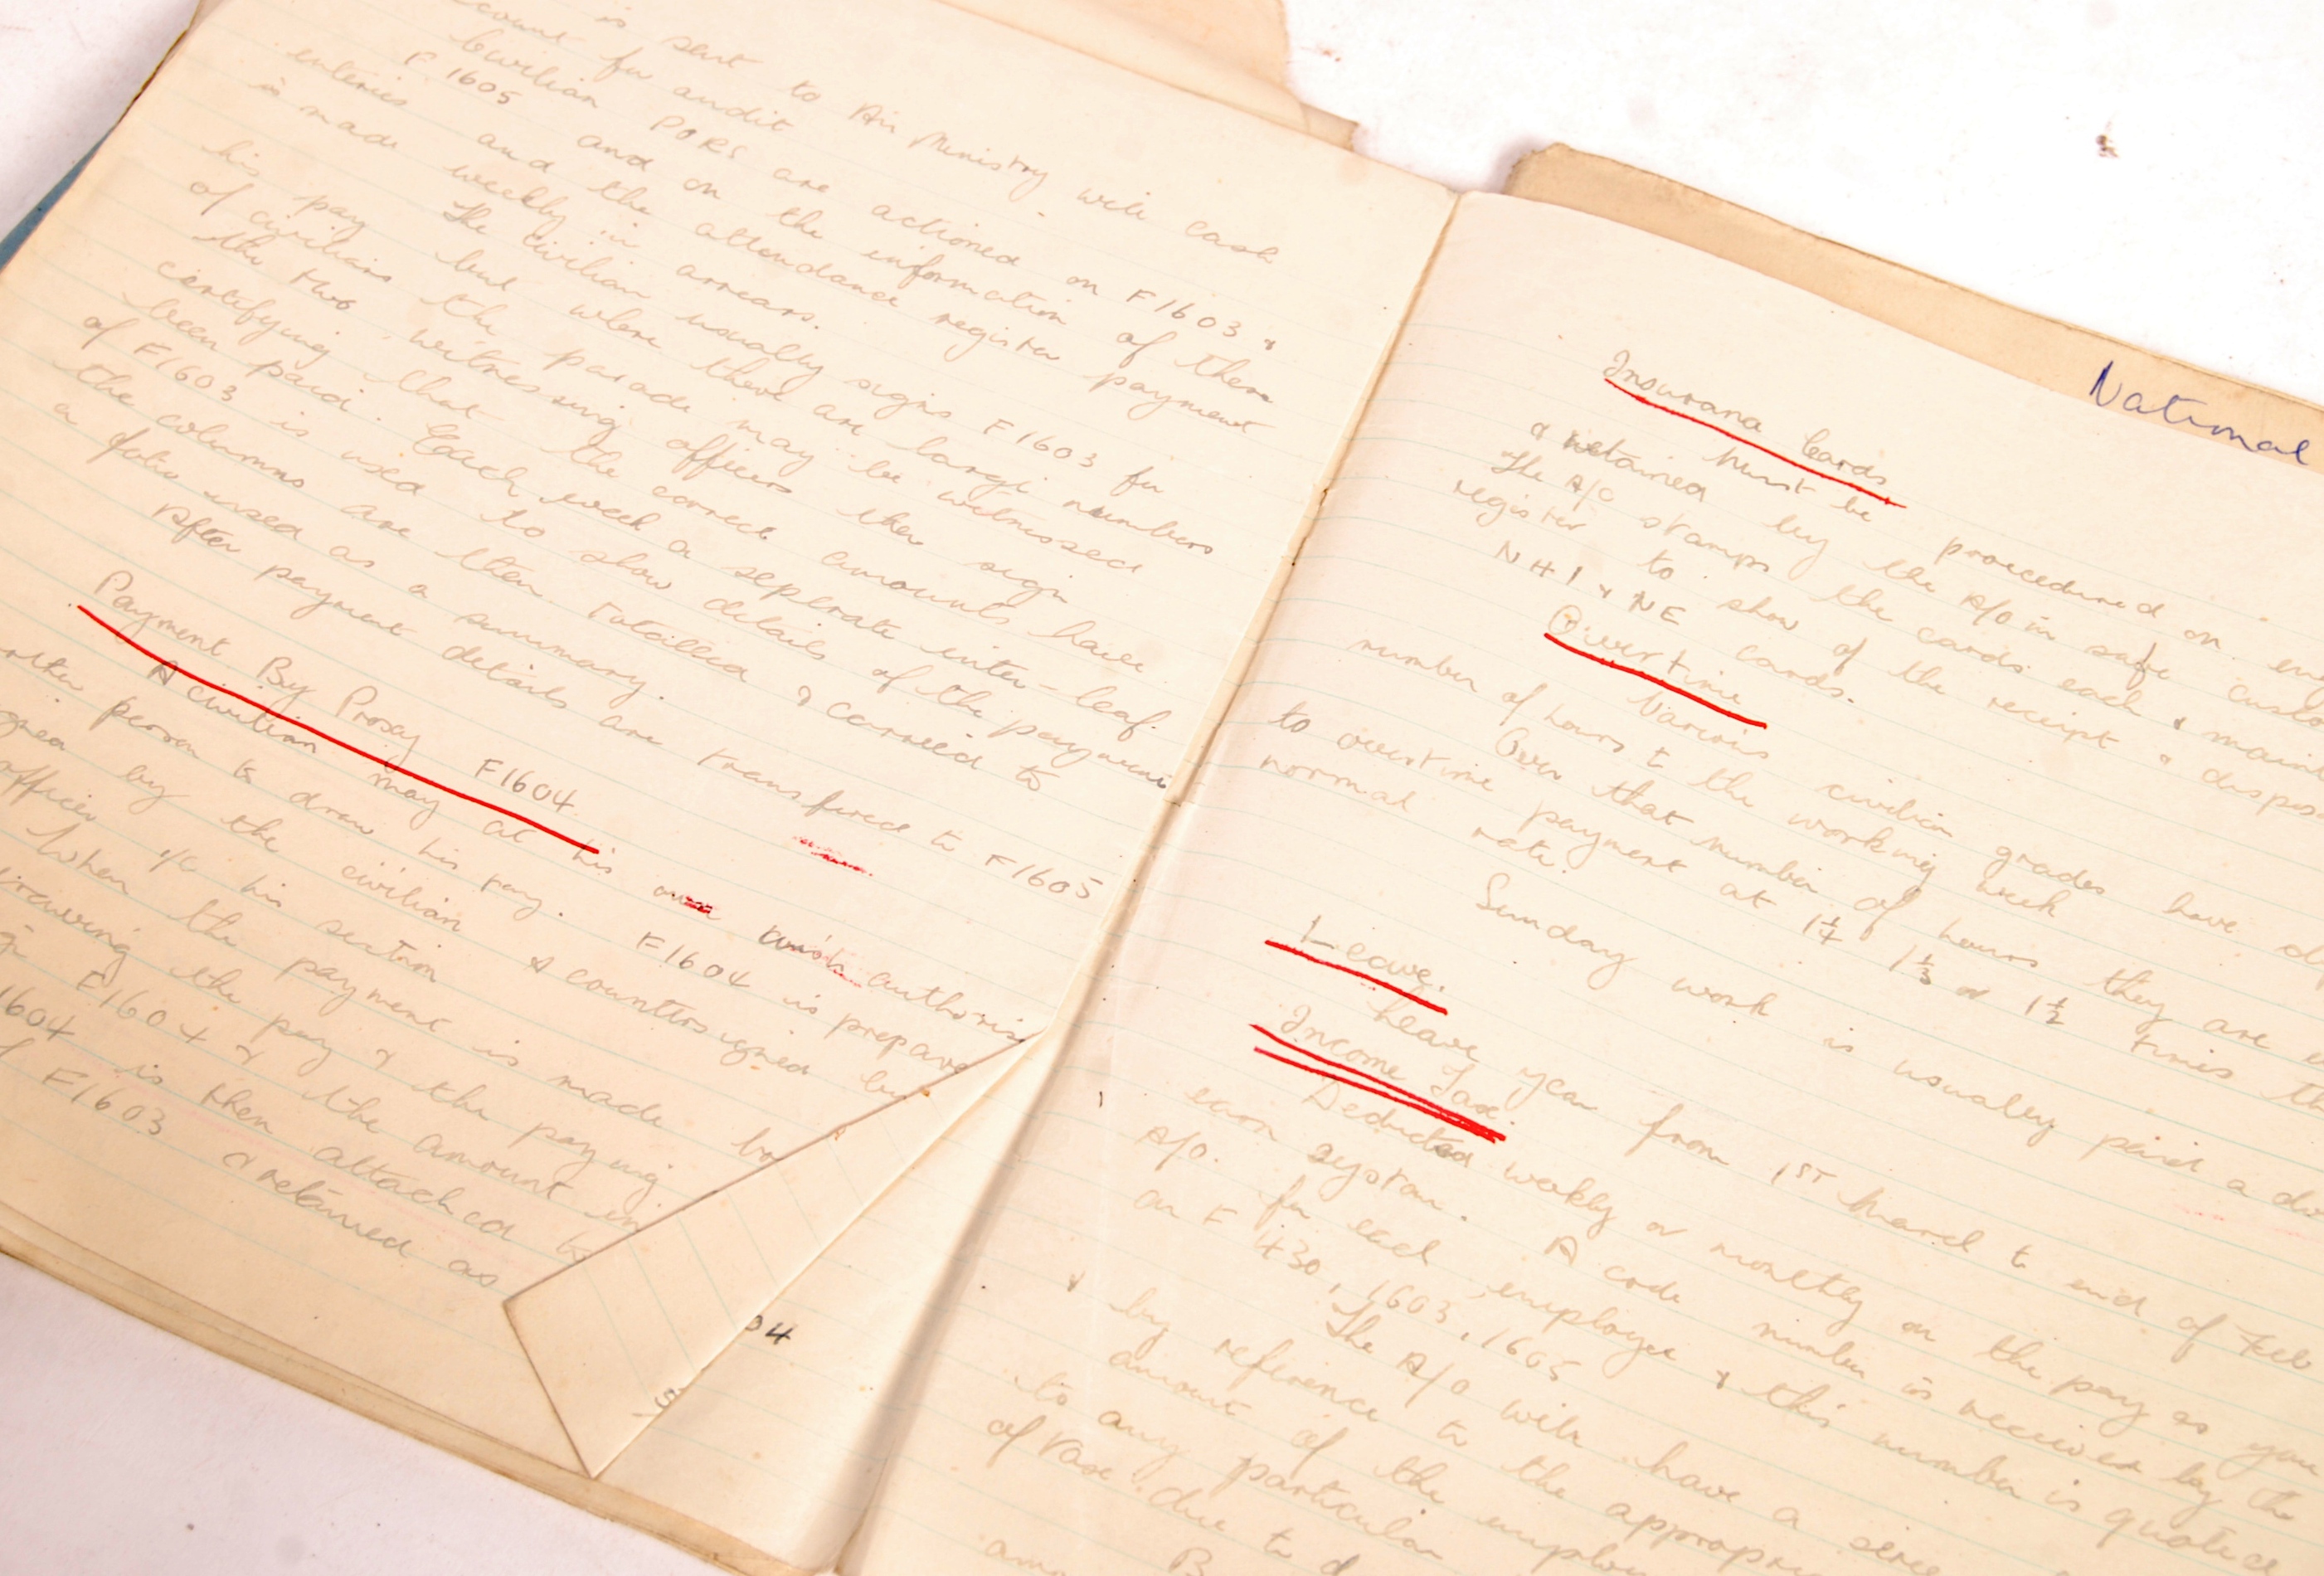 is sent to Air Ministry with cash
account for audit
Civilian PORS are actioned on F1603 &
F 1605 and on the information of them
enteries and the attendance register payment
is made weekly in arrears.
The civilian usually signs F1603 for
his pay but where there are large numbers
of civilians the parade may be witnessed
the two witnessing officers then sign
certifying that the correct amounts have
been paid. Each week a seperate inter-leaf
of F1603 is used to show details of the payment
the columns are then totalled & carried to
a folio used as a summary.
After payment details are transfered to F1605
Payment By Proxy F1604
A civilian may at his own authoris
other person to draw his pay. F1604 is prepare
by the civilian & countersigned by
officer i/c his section
When the payment is made by
the pay & the paying
F1604 & the amount in
1604 is then attached to
F1603 & retained as
04
S
National
Insurance Cards
Must be procedured on
& retained by the A/O in safe custo
The A/C stamps the cards each & maint
register to show of the receipt & dispos
NHI & NE cards.
Overtime
Various civilian grades have
number of hours to the working week
Over that number of hours they are
to overtime payment at 1 1/4 1 1/3 or 1 1/2 times th
normal rate.
Sunday work is usually paid a do
Leave.
Leave year from 1ST March to end of Feb
Income Tax
Deducted weekly or monthly on the pay as you
earn system. A code number is received by the
A/O. for each employee & this number is quoted
on F 430, 1603, 1605
The A/O will have a
& by reference to the appropri
amount of the employ
to any particular
of tax due to d
B